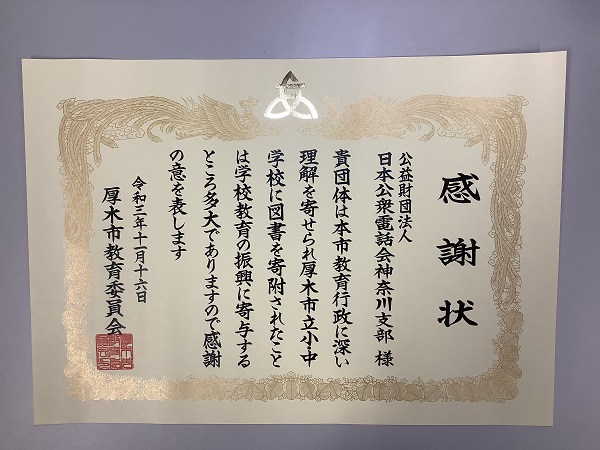 感謝状
公益財団法人
日本公衆電話会神奈川支部 様
貴団体は本市教育行政に深い
理解を寄せられ厚木市立小・中
学校に図書を寄附されたこと
は学校教育の振興に寄与する
ところ多大でありますので感謝
の意を表します
令和三年十一月十六日
厚木市教育委員会